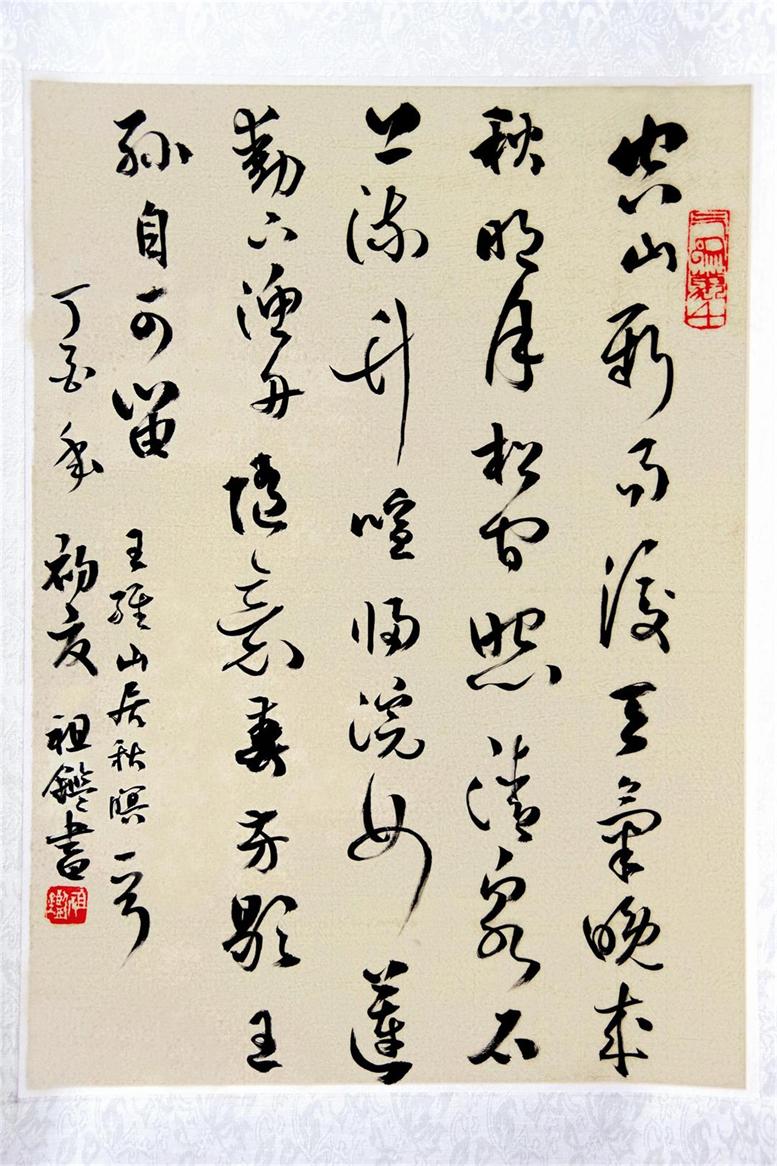 空山新雨後天氣晚來
秋明月松間照清泉石
上流竹喧歸浣女蓮
動下漁舟隨意春芳歇王
孫自可留 王維山居秋暝一首
丁酉年 初夏 祖鑑書
祖鑑